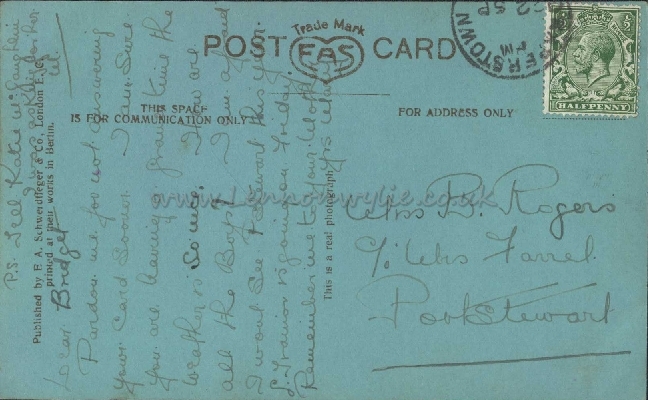 POST CARD
Trade Mark
FAS
THIS SPACE
IS FOR COMMUNICATION ONLY
FOR ADDRESS ONLY
HALFPENNY
Published by F. A. Schwerdtfeger & Co., London E.C.
printed at their works in Berlin.
This is a real photograph
www.Lennonwylie.co.uk
P.S. Tell Katie
I was asking for her
Dear Bridget
Pardon me for not answering
your Card Sooner. I am Sure
you are having a grand time the
weather is so nice. How are
all the Boys? I am afraid
I wont See Pt Stewart this year.
L. Trainor is going on Friday
Remember me to your Mother
Miss B. Rogers
c/o Mrs Farrel
Portstewart